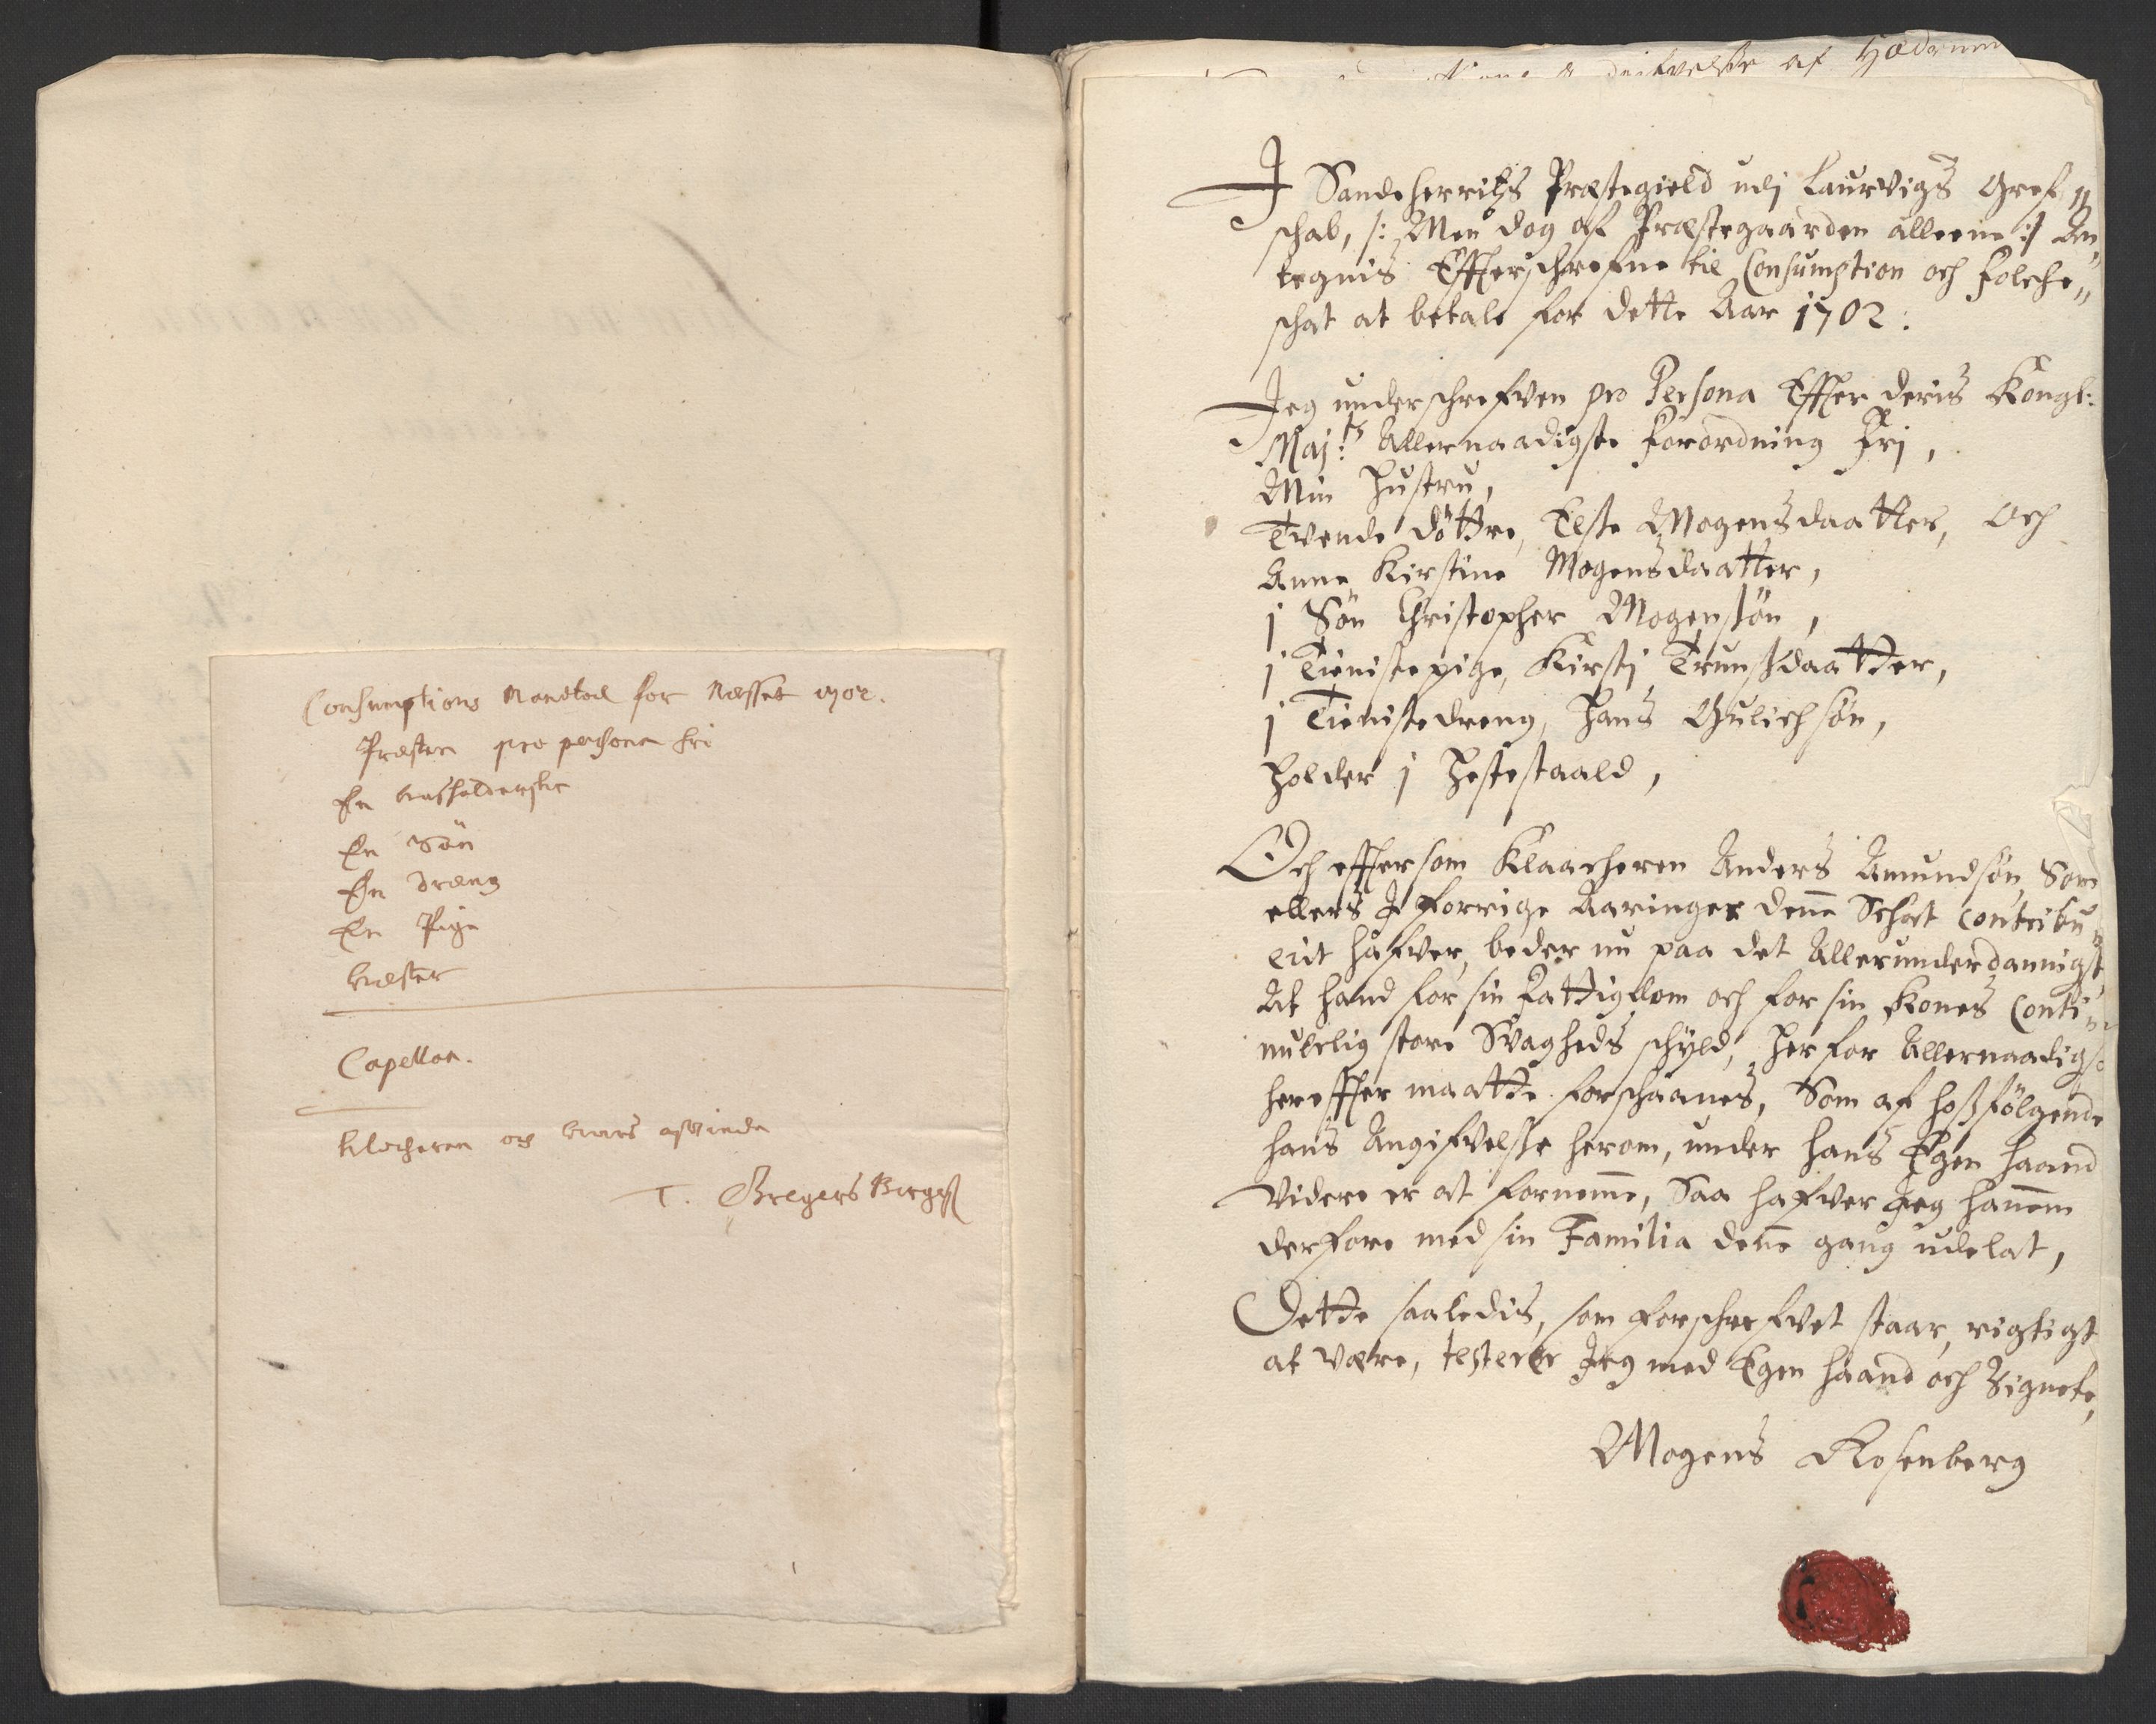 Consumptions Mandtal for Næsset 1702.
Præsten pro persona fri
En huusholderske
En Søn
En dreng
En Pige
Capellan.
Klocheren og hans qvinde
T. Gregers Birges
af Hedrum
I Sandeherritz Præstegield udj Laurvigs Gref„
schab, /: Men dog af Præstegaarden alleene :/ An„
tegnis Effterschrefne til Consumption och folche„
schat at betale for dette Aar 1702:
Jeg underschrefven pro Persona Effter deris Kongl:
Maj:ts Allernaadigste forordning frj,
Min Hustru,
Tvende döttre, Else Mogensdaatter, och
Anne Kirstine Mogensdaatter,
j Sön Christopher Mogensön,
j Tienistepige, Kirstj Trunsdaatter,
j Tienistedreng, Hans Gulichsön,
Holder j Hestestaald,
Och effter som Klaacheren Anders Amundsön, Som
ellers I forrige Aaringer denne Schat Contribu„
erit hafver, beder nu paa det Allerunderdannigst
At hand for sin Fattigdom och for sin Kones Conti„
nuerlig store Svagheds schyld, herfor Allernaadigst
hereffter maatte forschaanes, Som af hoßfölgende
hans Angifvelße herom, under hans Egen haand
Videre er at fornemme, Saa hafver Jeg hannem
derfore med sin Familia denne gang udelat,
Dette saaledis, som forschrefvet staar, rigtigt
at være, testerer Jeg med Egen haand och Signete,
Mogens Rosenberg